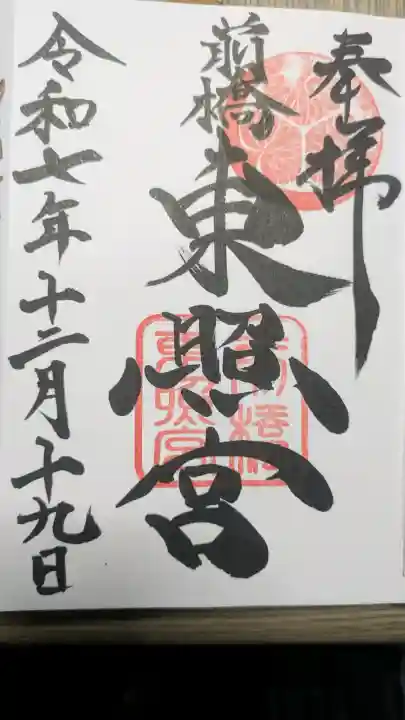 奉拝
前橋
東照宮
前橋
東照宮
令和七年十二月十九日